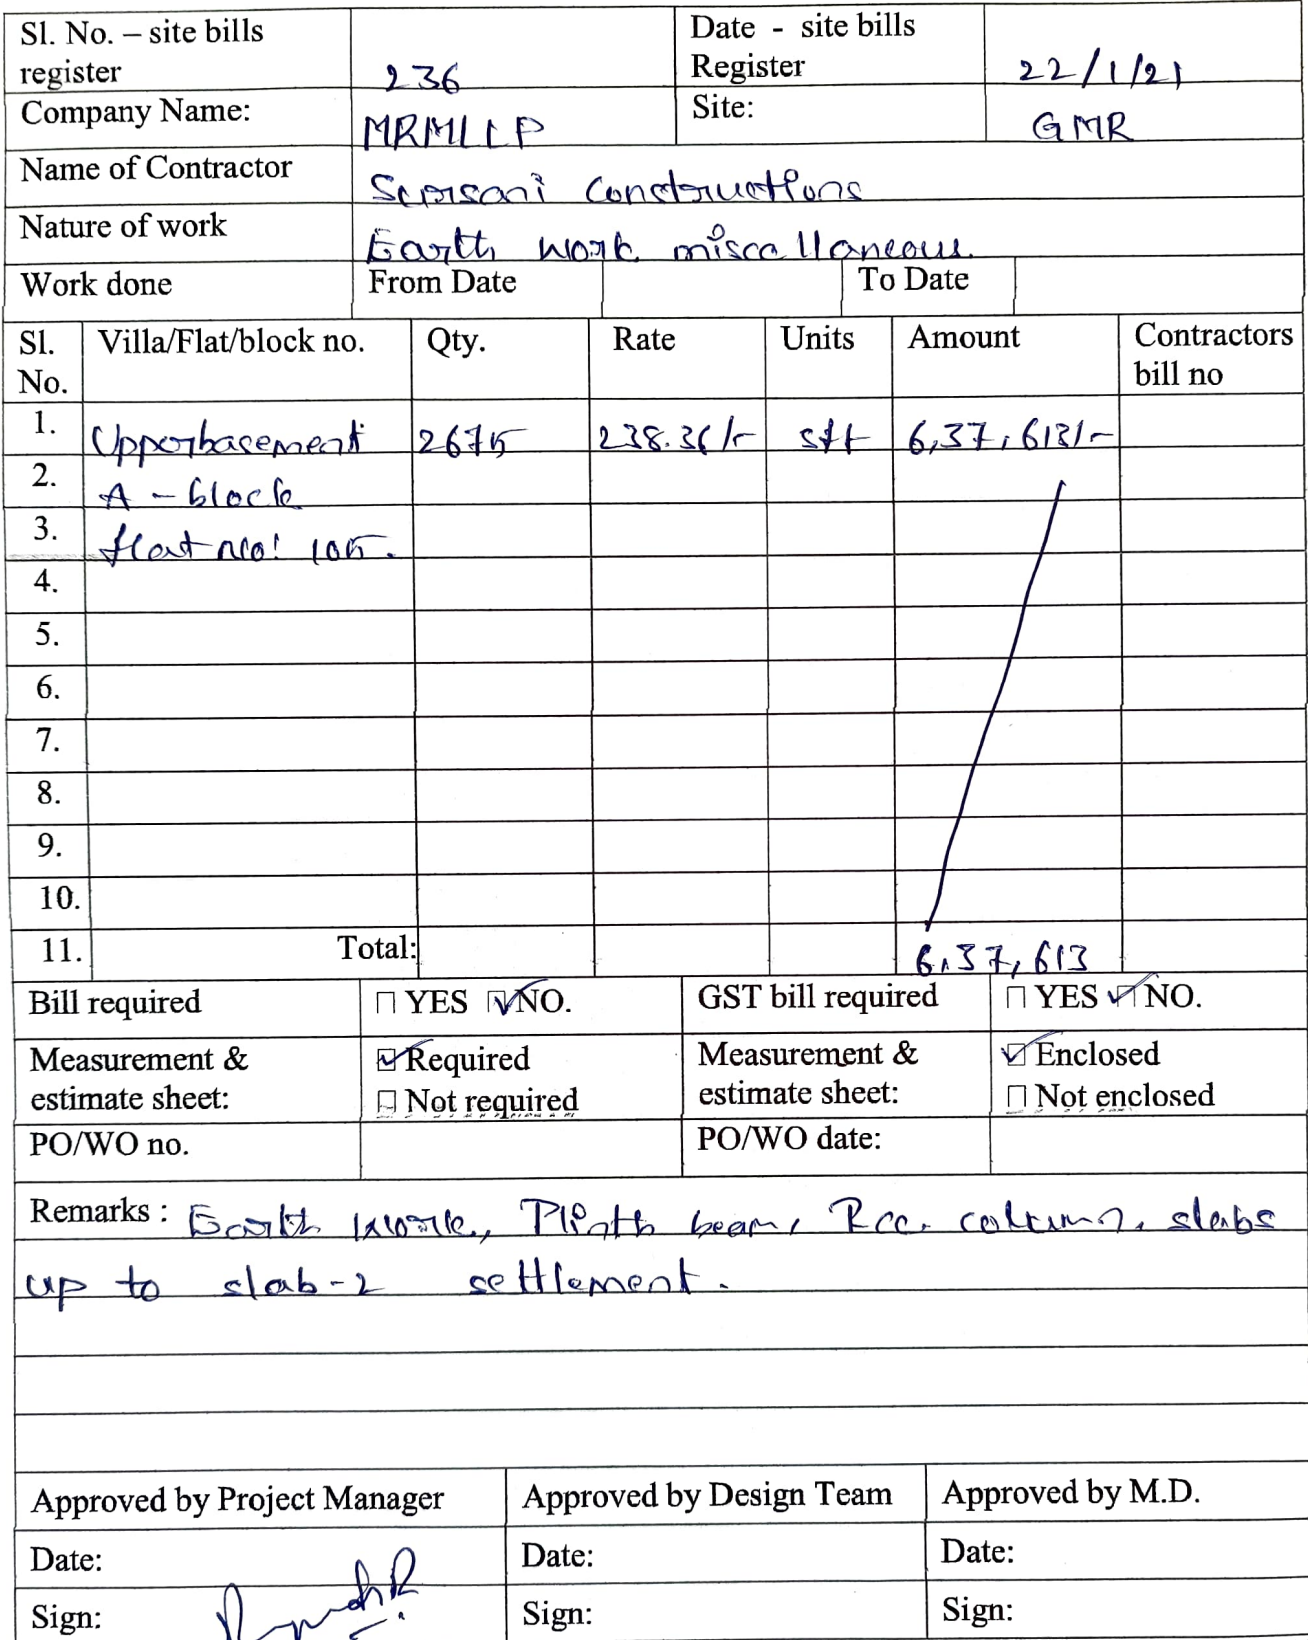 Sl. No. – site bills register 236 Date - site bills Register 22/1/21
Company Name: MRMLLP Site: GMR
Name of Contractor Sursani Constructions
Nature of work Earth work miscellaneous.
Work done From Date To Date
Sl. No. Villa/Flat/block no. Qty. Rate Units Amount Contractors bill no
1. Upperbasement 2675 238.36/- sft 6,37,613/-
2. A - block
3. flat no: 105.
4.
5.
6.
7.
8.
9.
10.
11. Total: 6,37,613
Bill required YES NO. GST bill required YES NO.
Measurement & estimate sheet: Required Not required Measurement & estimate sheet: Enclosed Not enclosed
PO/WO no. PO/WO date:
Remarks : Earth work, Plinth beam, Rcc. column, slabs
up to slab-2 settlement.
Approved by Project Manager Approved by Design Team Approved by M.D.
Date: Date: Date:
Sign: Sign: Sign: